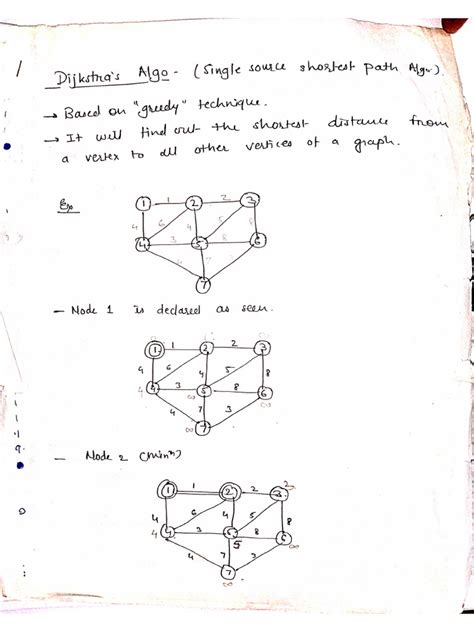 Dijkstra's Algo - (Single source shortest path Algo).
→ Based on "greedy" technique.
→ It will find out the shortest distance from
a vertex to all other vertices of a graph.
Ex
1 1 2 2 3
4 6 4 5 8
4 3 5 8 6
4 7 3
7
- Node 1 is declared as seen.
1 1 2 2 3
4 6 4 5 8
4 3 5 8 6
4 ∞ ∞
4 7 3
∞ 7
- Node 2 (minm)
2
1 1 2 2 3
4 6 4 5 8
4 4 3 5 8 6
5 ∞
4 7 3
7
∞